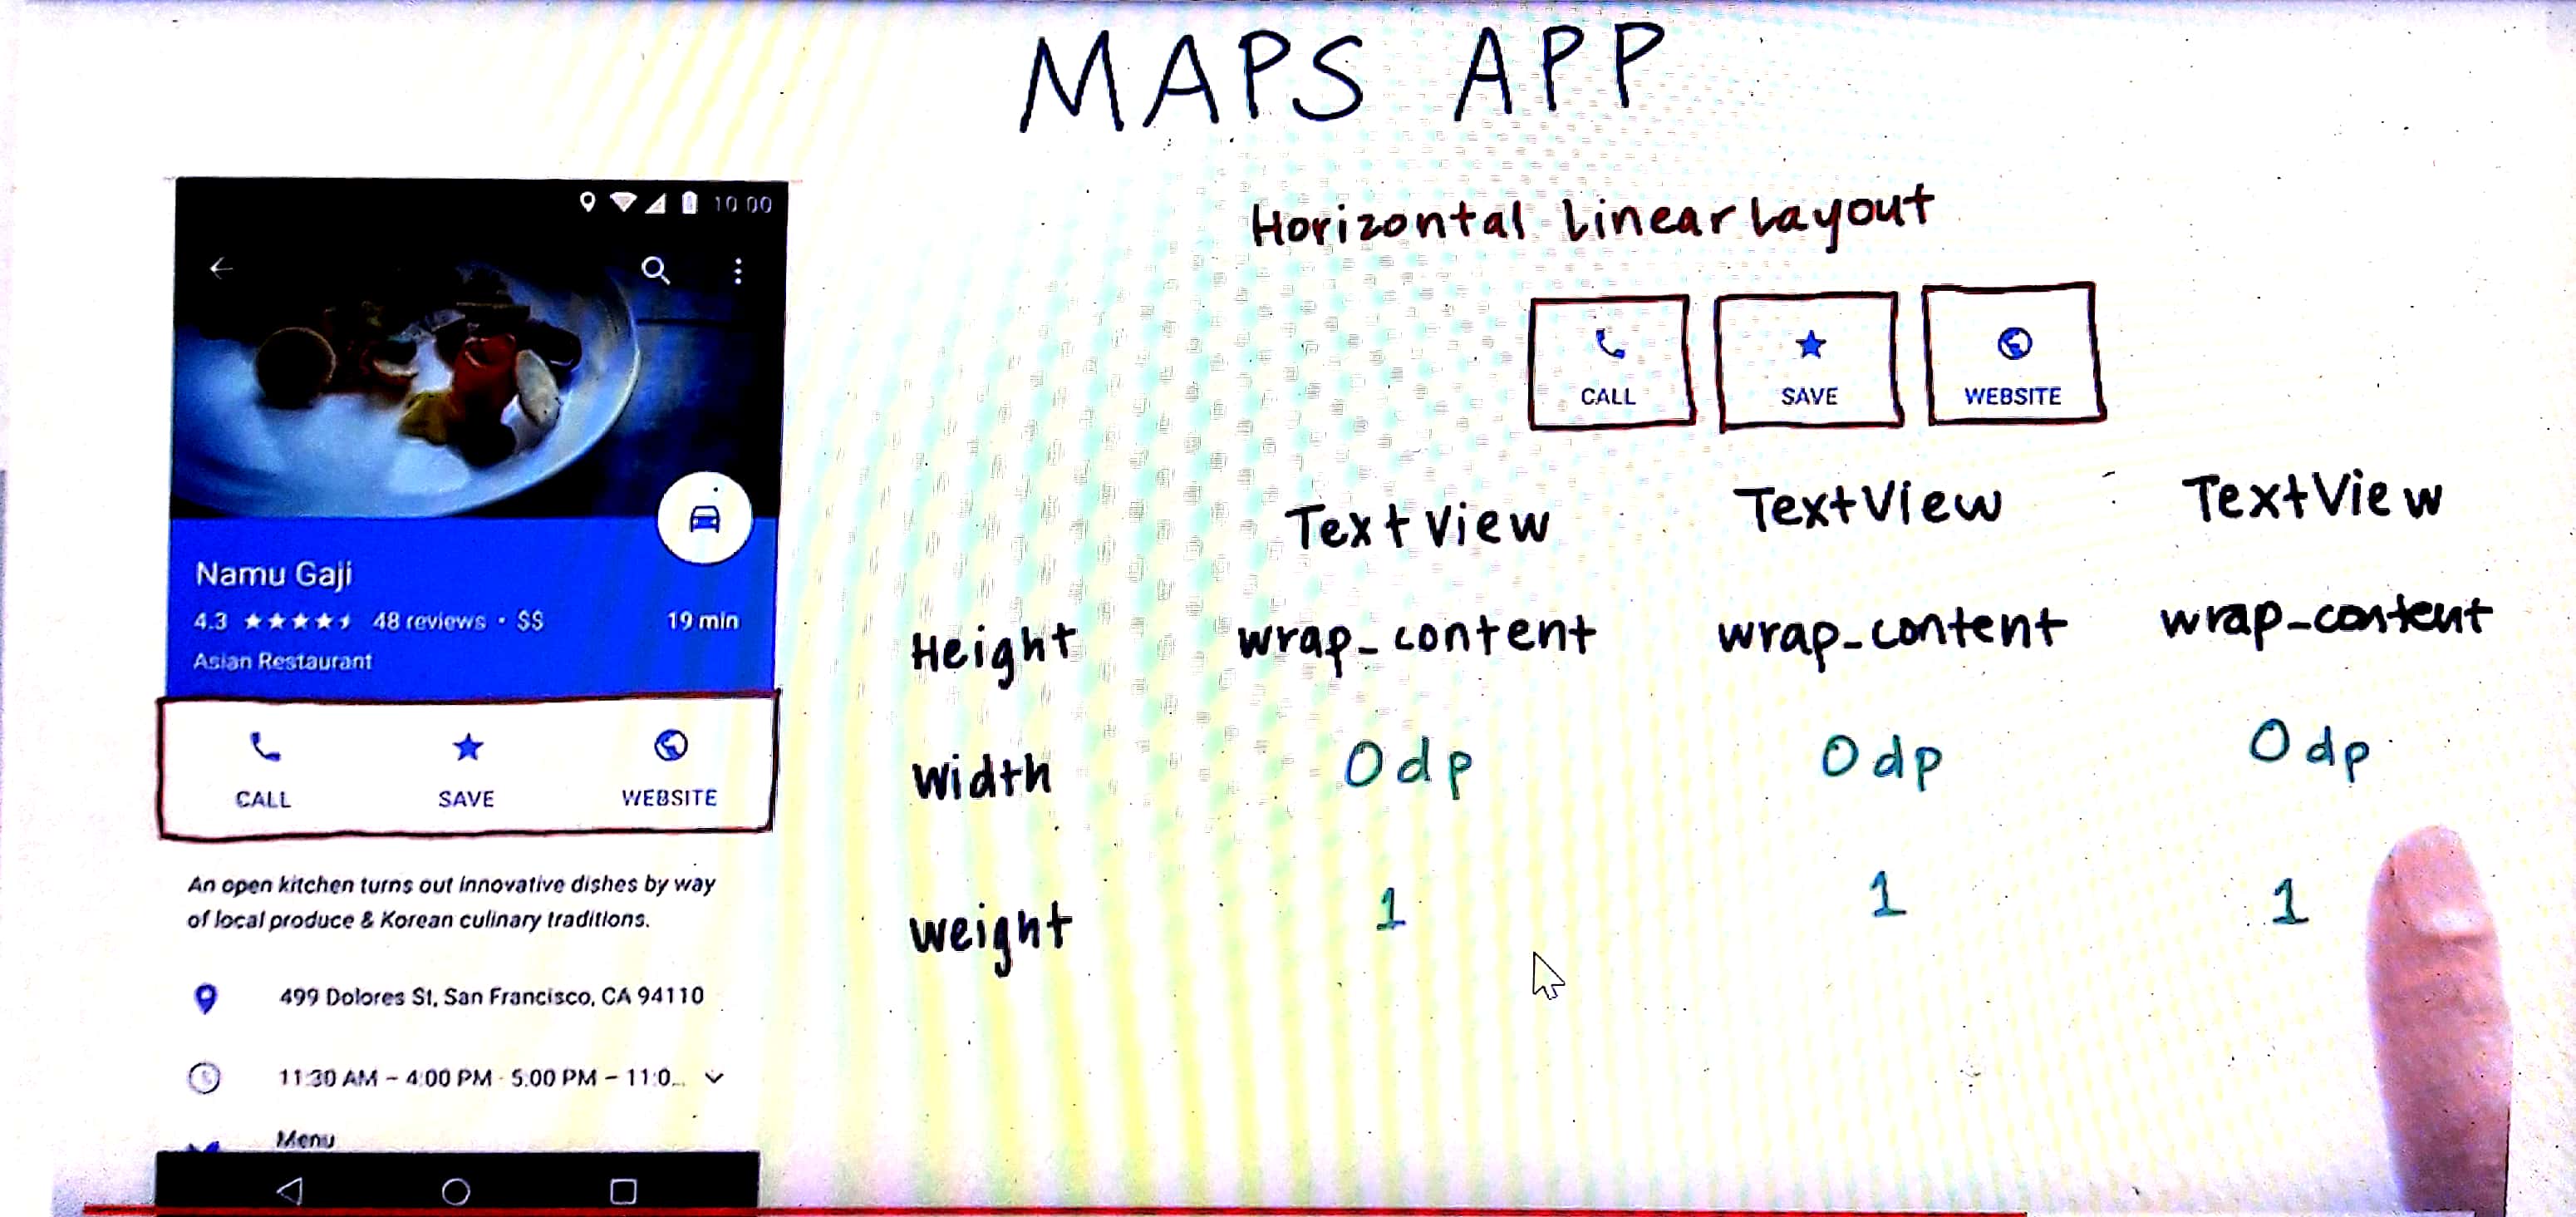 MAPS APP
10:00
Namu Gaji
4.3 48 reviews • $$ 19 min
Asian Restaurant
CALL SAVE WEBSITE
An open kitchen turns out innovative dishes by way
of local produce & Korean culinary traditions.
499 Dolores St, San Francisco, CA 94110
11:30 AM – 4:00 PM · 5:00 PM – 11:0...
Menu
Horizontal LinearLayout
CALL SAVE WEBSITE
TextView TextView TextView
Height wrap_content wrap_content wrap_content
Width 0dp 0dp 0dp
Weight 1 1 1